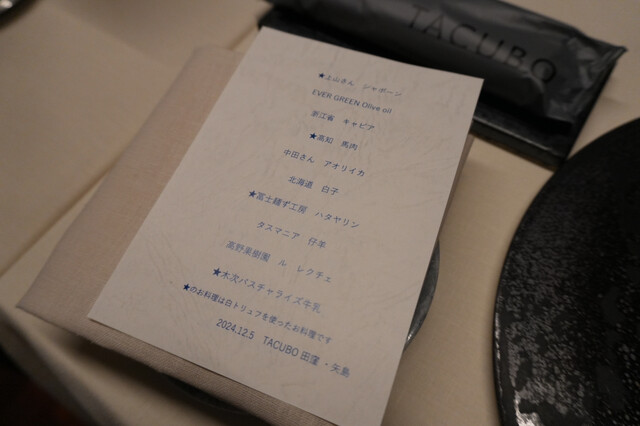 TACUBO
★土山さん シャポーン
EVER GREEN Olive oil
浙江省 キャビア
★高知 馬肉
中田さん アオリイカ
北海道 白子
★冨士麺ず工房 ハタヤリン
タスマニア 仔羊
高野果樹園 ル レクチェ
★木次パスチャライズ牛乳
★のお料理は白トリュフを使ったお料理です
2024.12.5 TACUBO 田窪・矢島